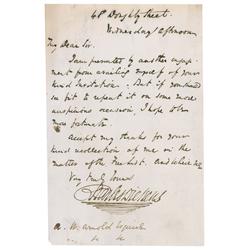 48 Doughty Street.
Wednesday Afternoon
My Dear Sir.
I am prevented by another engage-
ment from availing myself of your
kind invitation. But if you should
in fit to repeat it on some more
auspicious occasion, I hope to be
more fortunate.
accept my thanks for your
kind recollection of me in the
matter of the and
Very truly Yours
Charles Dickens
W. Arnold Esquire